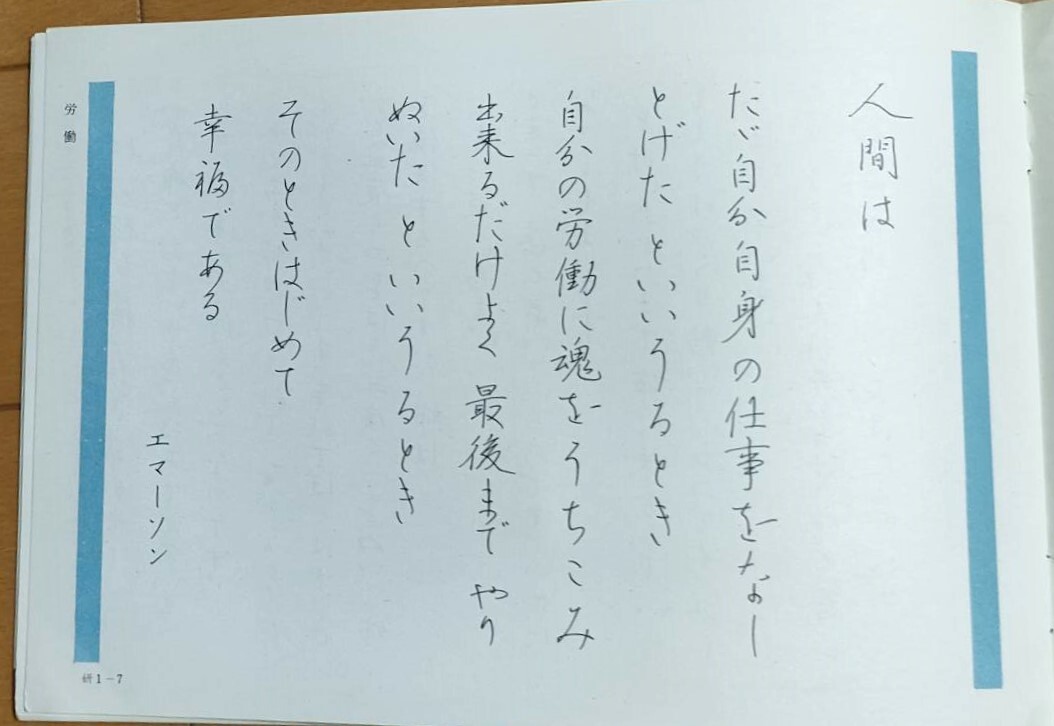 人間は
たゞ自分自身の仕事をなし
とげたといいうるとき
自分の労働に魂をうちこみ
出来るだけよく最後までやり
ぬいたといいうるとき
そのときはじめて
幸福である
エマーソン
労働
研1-7